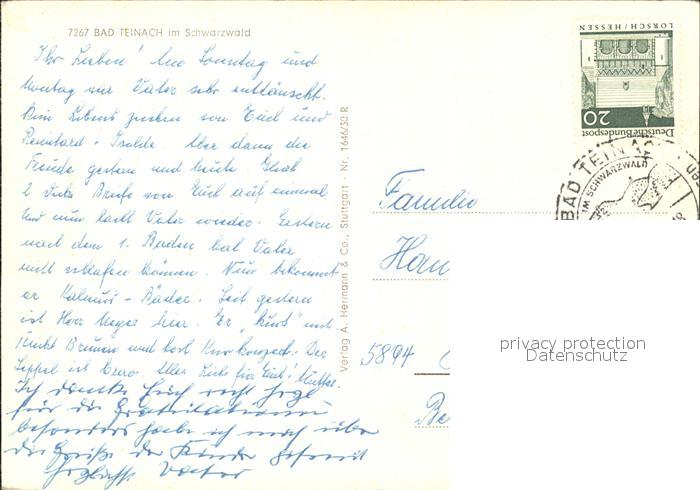 7267 BAD TEINACH im Schwarzwald
Ihr Lieben! Am Sonntag und
Montag war Vater sehr enttäuscht.
Kein Lebenszeichen von Euch und
Reinhard + Isolde. Aber dann die
Freude gestern und heute. Gleich
2 dicke Briefe von Euch auf einmal
Und nun lacht Vater wieder. Gestern
nach dem 1. Baden hat Vater
nicht schlafen können. Nun bekommt
er Kalmus-Bäder. Seit gestern
ist Herr Meyer hier. Er "kurt" mit
trinkt Brunnen und hört Kurkonzert. Der
ist Alles Liebe für Euch! Mutter.
Ich danke Euch recht herzl.
für die Gratulationen
besonders habe ich mich über
die Grüße der Kinder gefreut
Herzlichst Vater
Verlag A. Hermann & Co., Stuttgart - Nr. 1646/30 R
LORSCH/HESSEN
20
Deutsche Bundespost
BAD TEINACH
IM SCHWARZWALD
Familie
Han
5894
Be
privacy protection
Datenschutz